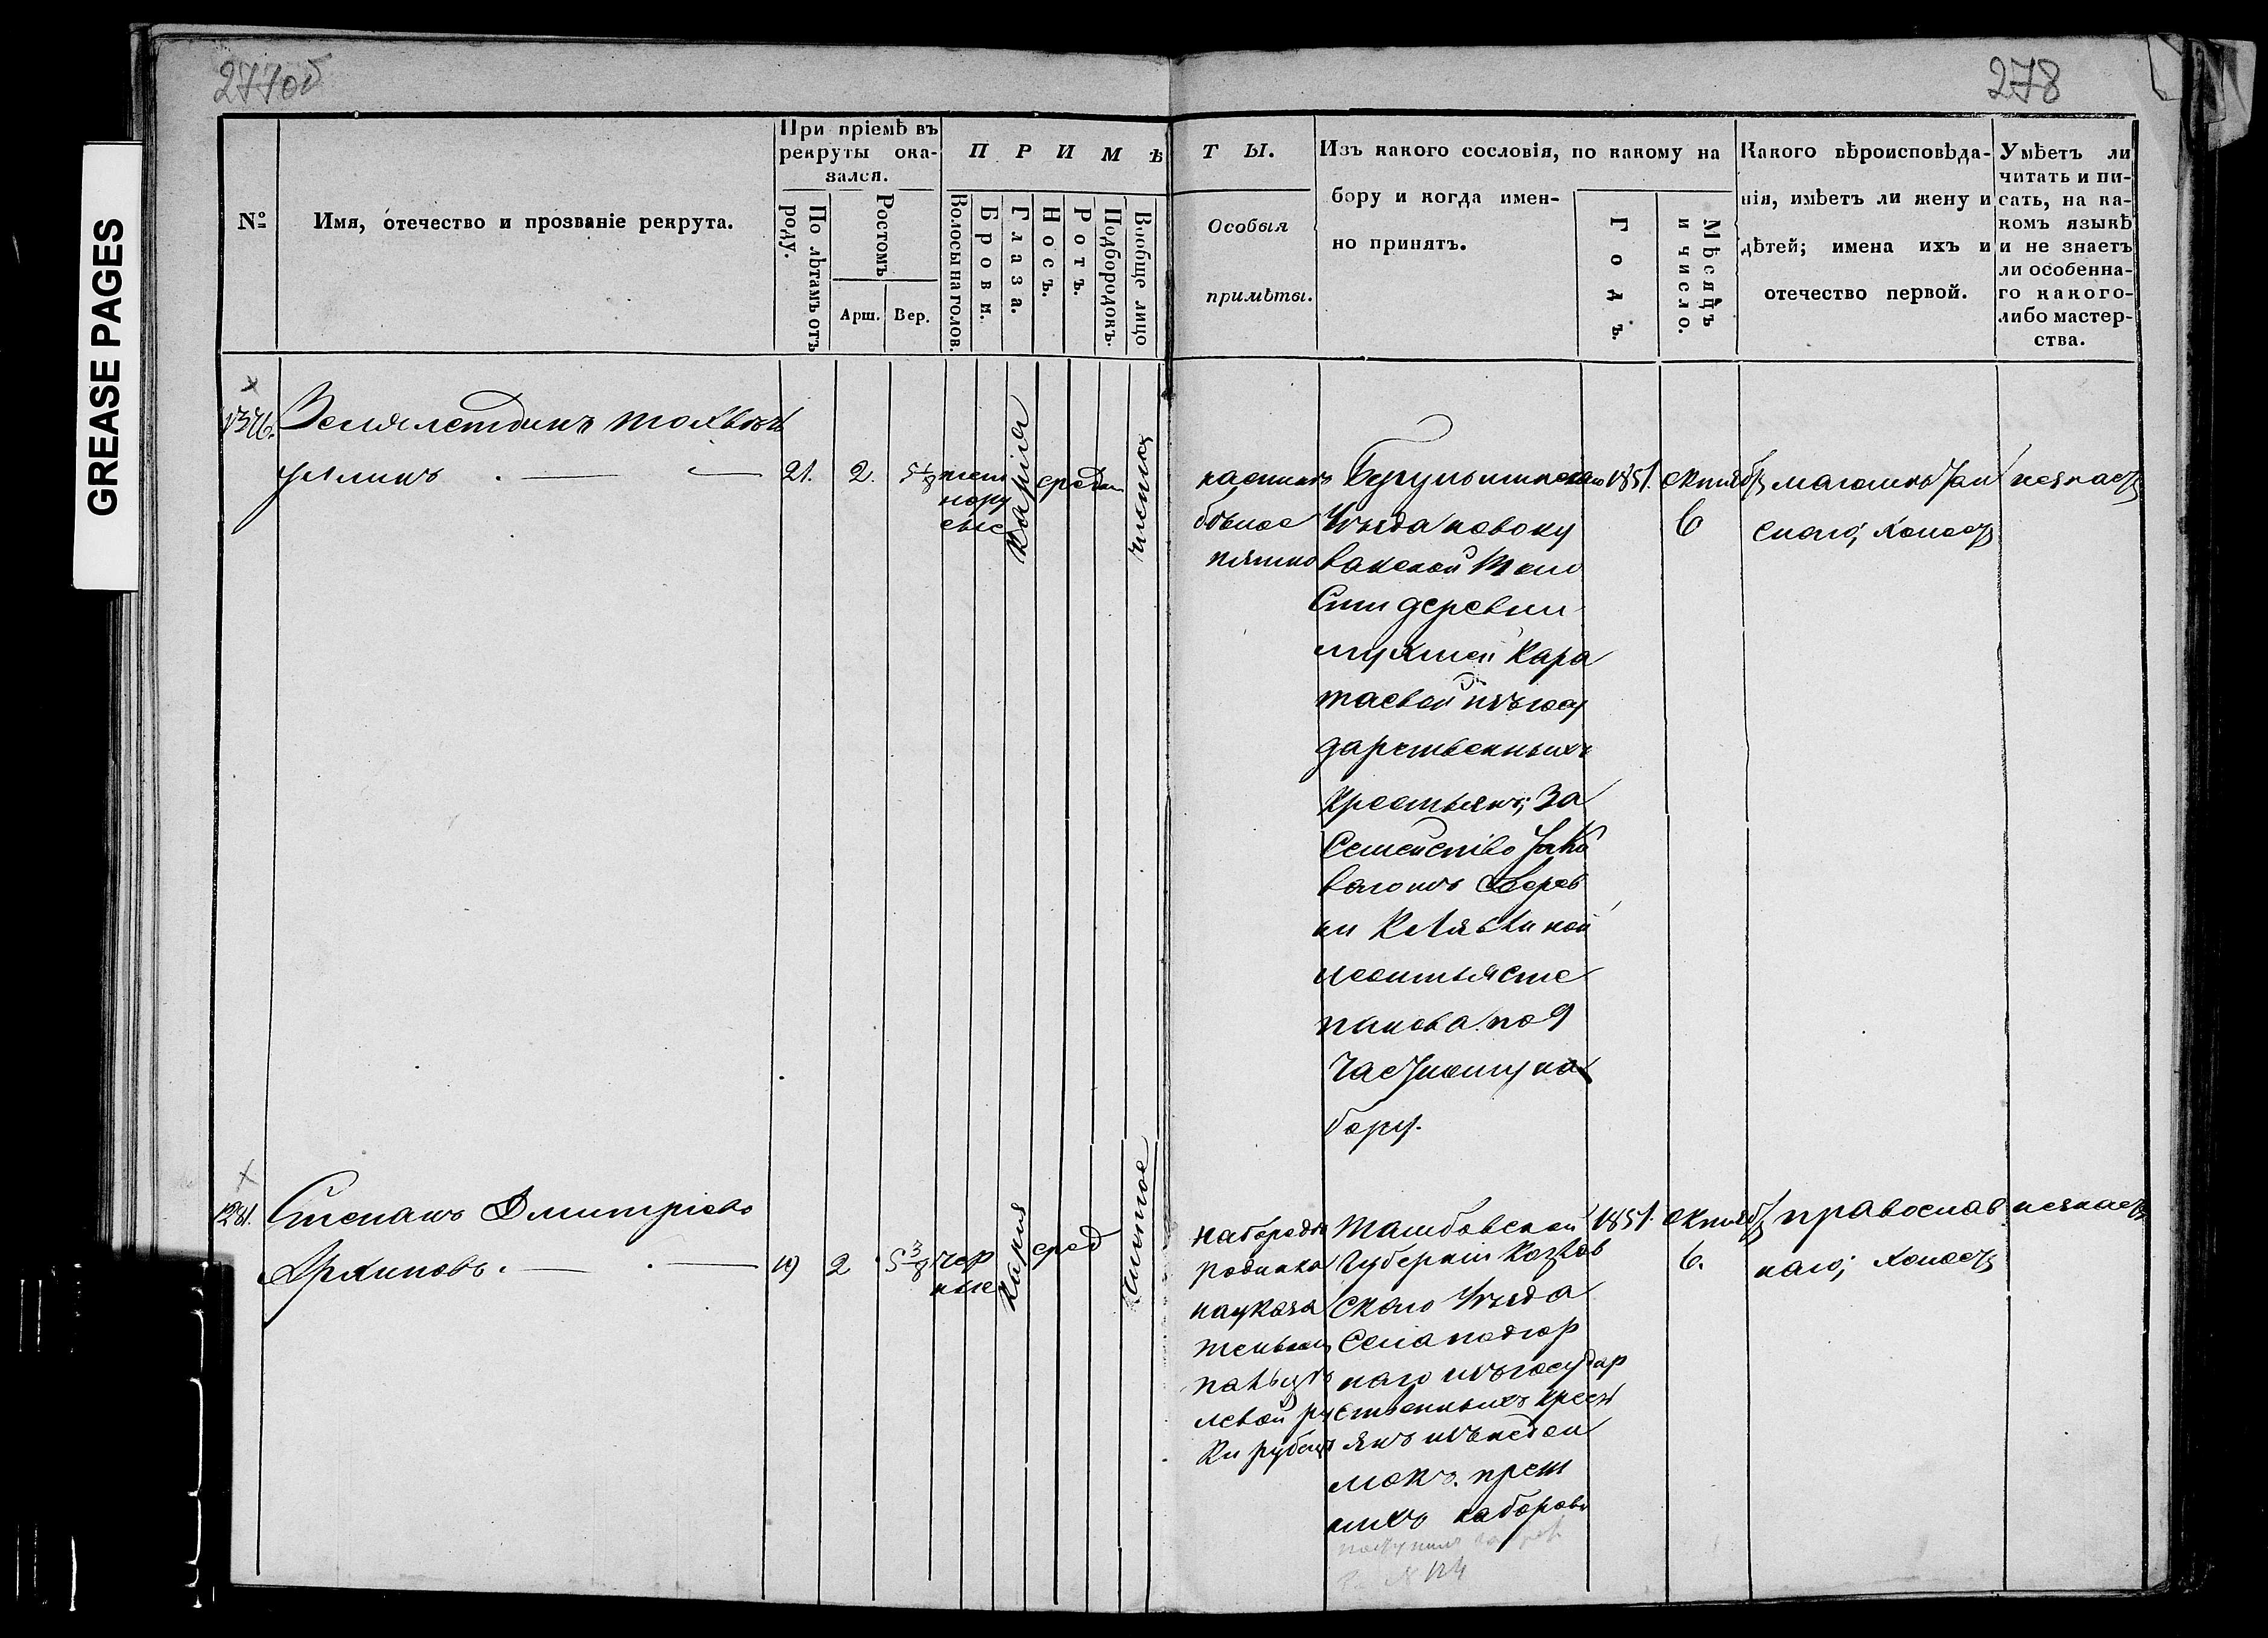 277об
278
GREASE PAGES
№
Имя, отечество и прозваніе рекрута.
При пріемѣ въ
рекруты ока-
зался.
По лѣтамъ отъ
роду.
Ростомъ
Арш.
Вер.
ПРИМѢ
Волосы на голов.
Брови.
Глаза.
Носъ.
Ротъ.
Подбородокъ.
Вообще лицо
ТЫ.
Особыя
примѣты.
Изъ какого сословія, по какому на
бору и когда имен-
но принятъ.
Годъ.
Мѣсяцъ
и число.
Какого вѣроисповѣда-
нія, имѣетъ ли жену и
дѣтей; имена ихъ и
отечество первой.
Умѣетъ ли
читать и пи-
сать, на ка-
комъ языкѣ
и не знаетъ
ли особенна-
го какого-
либо мастер-
ства.
21.
2.
5 1/8
темнору
сые
карія
средн
чистое
пятно
Бугульминскаго
Уѣзда
деревни
Кара
таевой изъ госу
дарственныхъ
Крестьянъ; За
Семейство
Дерев
ни
Степанова по 9
частному на
бору.
1851.
октября
6
магометан
скаго; холостъ
незнаетъ
1281.
Степанъ Дмитріевъ
Архиповъ.
19
2
5 3/8
чер
ные
карія
сред
чистое
на бородѣ
родинка
на указа
тельномъ
пальцѣ
левой ру
ки рубецъ
Тамбовской
Губерніи Козлов
скаго Уѣзда
Села Подгор
наго изъ государ
ственныхъ крест
янъ изъ недои
мокъ преж
нихъ наборовъ
1851.
октября
6.
православ
наго; холостъ
незнаетъ